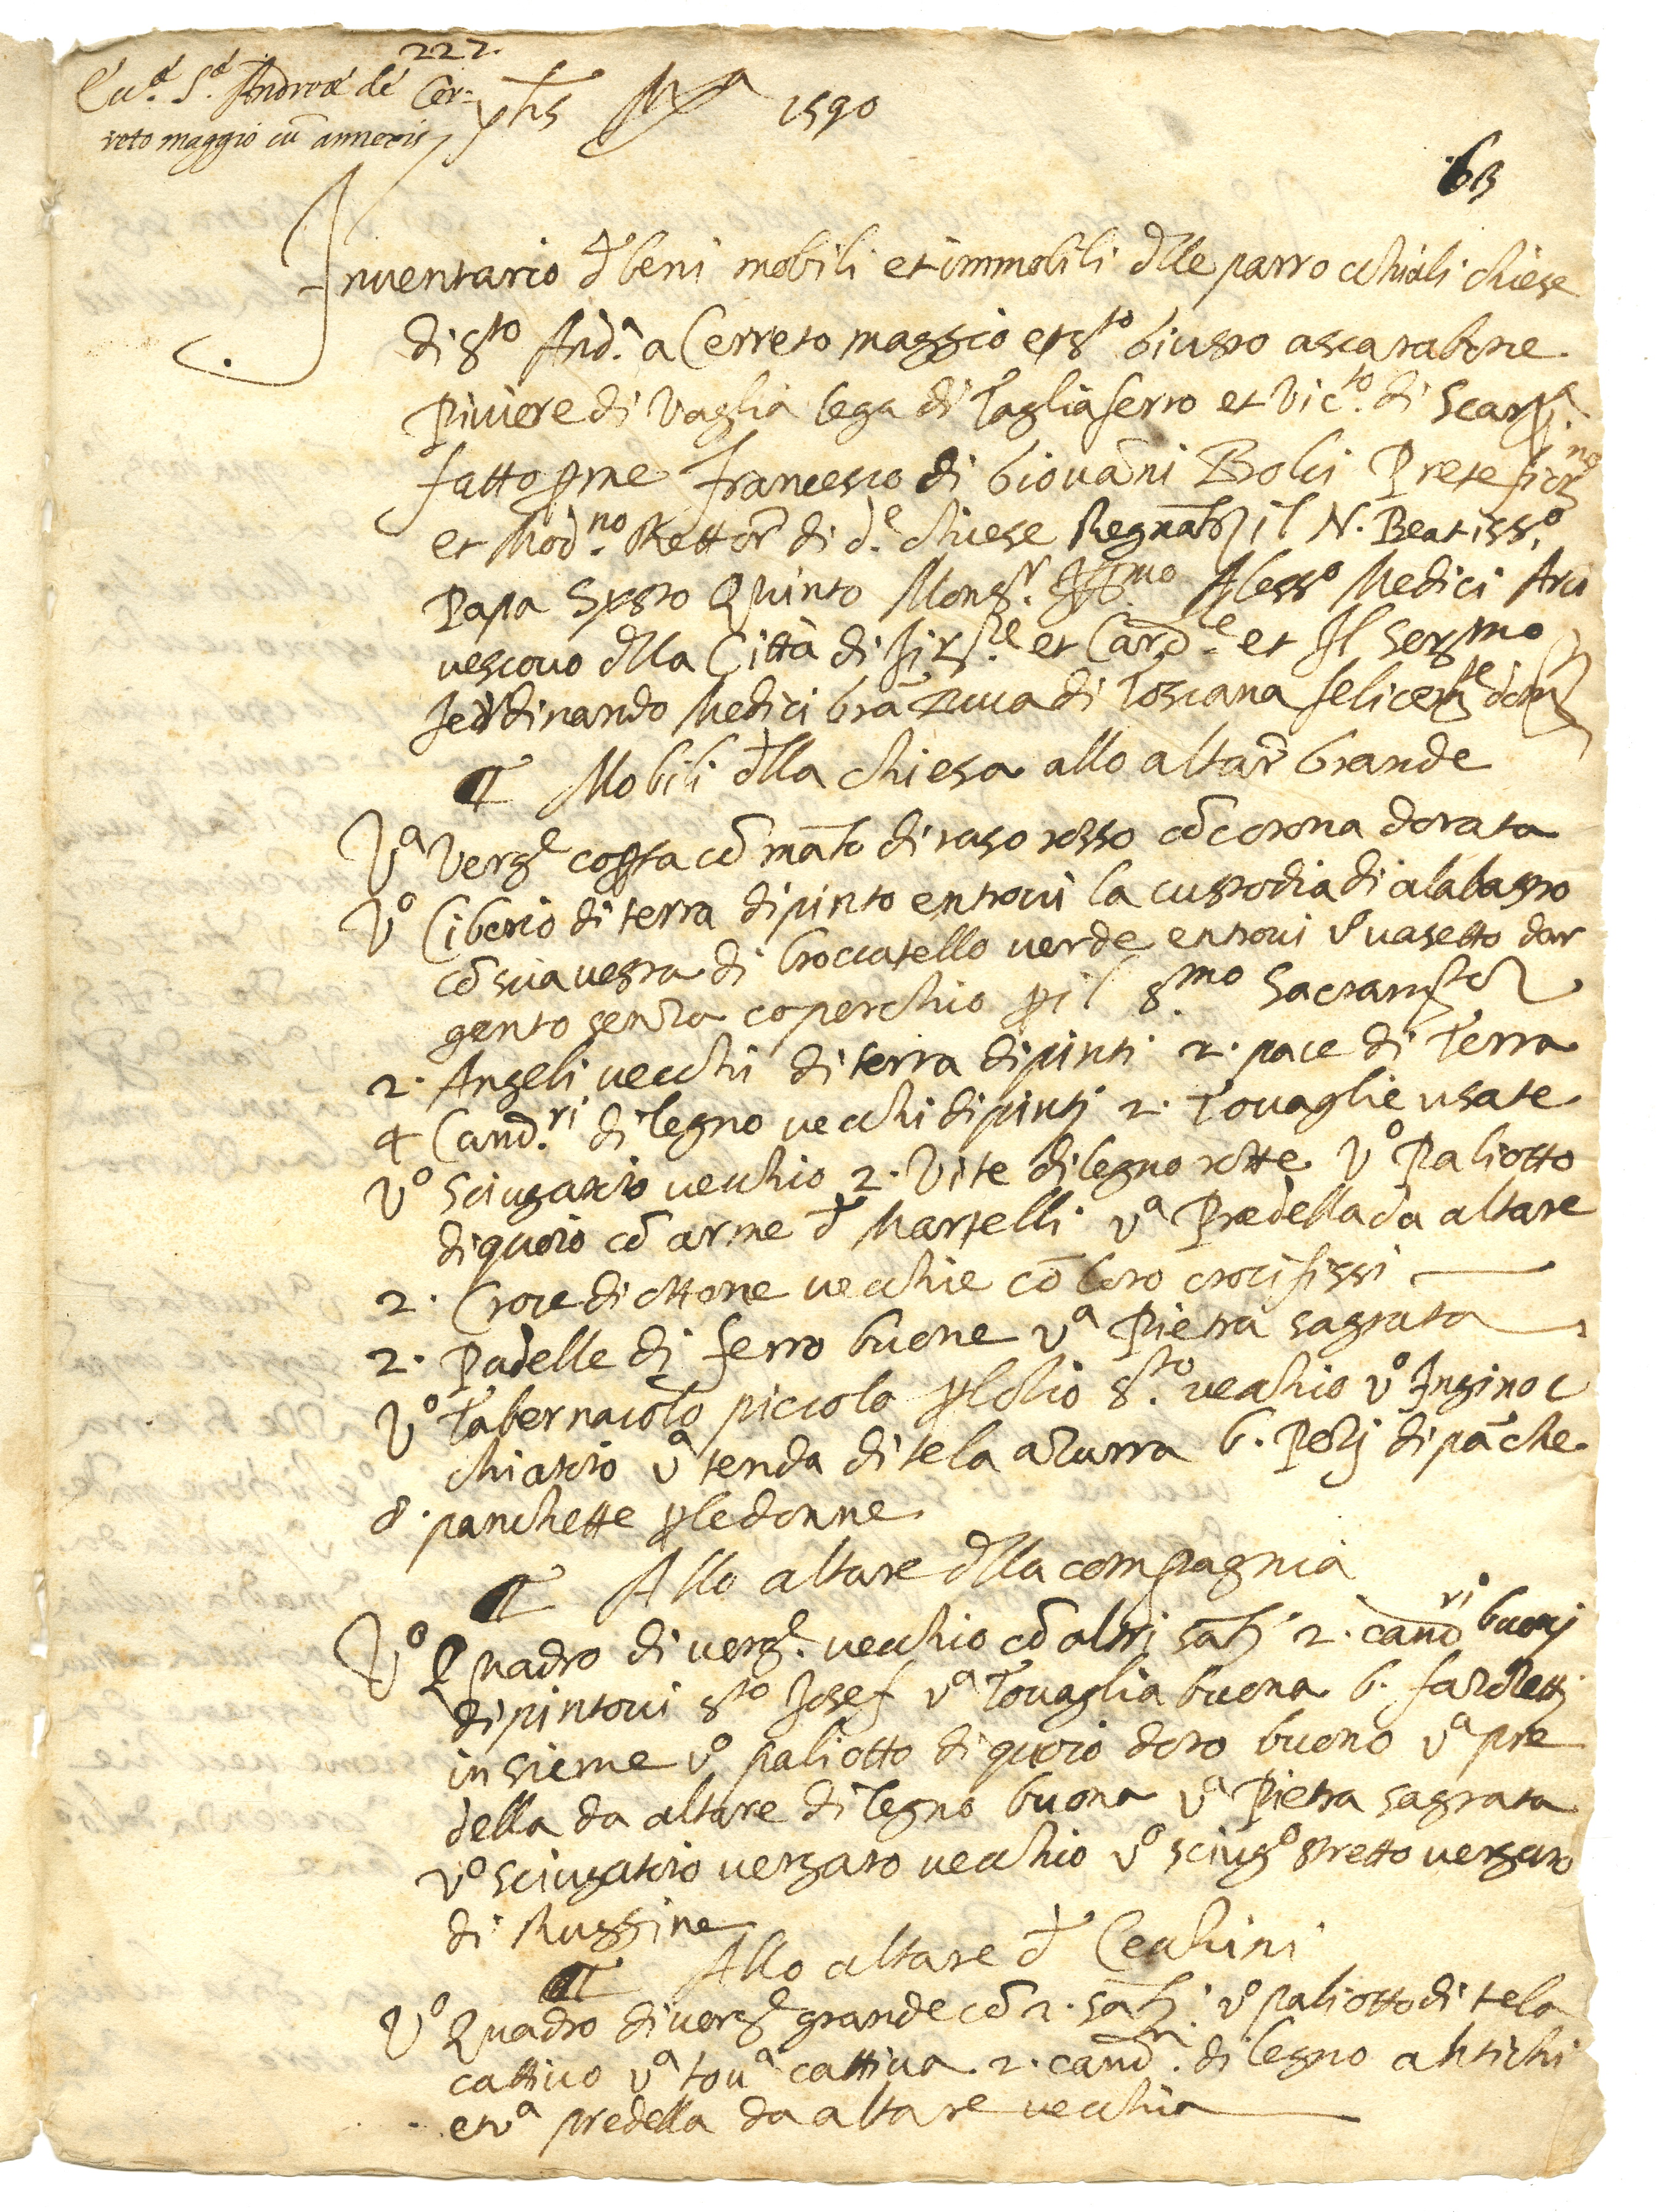 222.
Cu.ª S.ª Andreę de Cer-
reto maggio cū annexis
yhs Mª 1590
63
Inventario d̄ beni mobili et immobili d̄lle parrocchiali chiese
di Sto And.ª a Cerreto maggio et Sto Giusto a scarabone
Piviere di Vaglia lega di Tagliaferro et Vic.to di Scarp.ª
fatto p me Francesco di Giovāni Bolci Prete fior
et Mod.no Rettor di d.e chiese Regnāte il N. Beatiss.o
Papa Systo Quinto Mons.r Ill.mo Aless.o Medici Arci
vescovo d̄lla Città di Fir.ze et Card.le et Il Ser.mo
Ferdinando Medici Grā Duca di Toscana felicem.te
Mobili d̄lla chiesa allo altar̄ Grande
Vª Verge cō māto di raso rosso cō corona dorata
Vº Ciborio di terra dipinto entrovi la custodia di alabastro
cō sua vesta di broccatello verde entrovi vº vasetto d ar
gento senza coperchio p il S.mo Sacram.to
2. Angeli vecchi di terra dipinti 2. pace di Terra
4 Cand.ri di legno vecchi dipinti 2. Tovaglie usate
Vº Sciugatoio vecchio 2. Vite di legno rotte Vº Paliotto
di quoio cō arme d̄ Martelli vª Predella da altare
2. Croce di ottone vecchie cō loro crocifissi
2. Padelle di ferro buone vª Pietra sagrata
Vº Tabernacolo piccolo p lolio S.to vecchio vº Inginoc
chiatoio vª tenda di tela azurra 6. Pezi di pāche
8. panchette p le donne
Allo altare d̄lla compagnia
Vº Quadro di verg.e vecchio cō altri sāti 2. cand.ri buoni
dipintovi Sto Josef vª Tovaglia buona 6. fazoletti
insieme vº paliotto di quoio doro buono vª pre
della da altare di legno buona vª Pietra sagrata
vº sciugatoio vergato vecchio vº sciugº stretto vergato
di Ruggine
Allo altare d̄ Cechini
Vº Quadro di verge grande cō 2. sāti vº paliotto di tela
cattivo vª tovª cattiva 2. cand.ri di legno antichi
et vª predella da altare vecchia